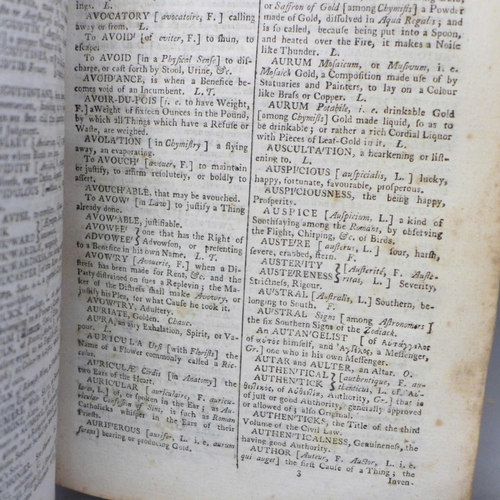 ings. L.
AVOCATORY [avocatoire, F.] calling
away or from. L.
To AVOID [of eviter, F.] to shun, to
escape
To AVOID [in a Physical Sense] to dis-
charge, or cast forth by Stool, Urine, &c.
AVOIDANCE, is when a Benefice be-
comes void of an Incumbent. L. T.
AVOIR-DU-POIS [i. e. to have Weight,
F.] a Weight of sixteen Ounces in the Pound,
by which all Things which have a Refuse or
Waste, are weighed.
AVOLATION [in Chymistry] a flying
away, an evaporating.
To AVOUCH [avouer, F.] to maintain
or justify, to affirm resolutely, or boldly to
assert.
AVOUCHABLE, that may be avouched.
To AVOW [in Law] to justify a Thing
already done.
AVOWABLE, justifiable.
AVOWEE } one that has the Right of
ADVOWEE } Advowson, or presenting
to a Benefice in his own Name. L. T.
AVOWRY [Avouerie, F.] when a Di-
stress has been made for Rent, &c. and the
Party distrained on sues a Replevin; the Ma-
ker of the Distress shall make Avowry, or
justify his Plea, for what Cause he took it.
AVOWTRY, Adultery.
AURIATE, Golden. Chauc.
AURA, an airy Exhalation, Spirit, or Va-
pour. L.
AURICULA Ursi [with Florists] the
Name of a Flower commonly called a Ric-
colus.
AURICULÆ Cordis [in Anatomy] the
two Ears of the Heart.
AURICULAR [auriculaire, F. auricu-
laris, L.] of, or spoken in the Ear; as Au-
ricular Confession of Sins, is such as Roman
Catholicks whisper in the Ears of their
Priests.
AURIFEROUS [aurifer, L. i. e. aurum
ferens] bearing or producing Gold.
or Saffron of Gold [among Chymists] a Powder
made of Gold, dissolved in Aqua Regalis; and
is so called, because being put into a Spoon,
and heated over the Fire, it makes a Noise
like Thunder. L.
AURUM Mosaicum, or Mosivum, i. e.
Mosaick Gold, a Composition made use of by
Statuaries and Painters, to lay on a Colour
like Brass or Copper. L.
AURUM Potabile, i. e. drinkable Gold
[among Chymists] Gold made liquid, so as to
be drinkable; or rather a rich Cordial Liquor
with Pieces of Leaf-Gold in it. L.
AUSCULTATION, a hearkening or list-
ening to. L.
AUSPICIOUS [auspicialis, L.] lucky,
happy, fortunate, favourable, prosperous.
AUSPICIOUSNESS, the being happy,
Prosperity.
AUSPICE [Auspicium, L.] a kind of
Soothsaying among the Romans, by observing
the Flight, Chirping, &c. of Birds.
AUSTERE [austerus, L.] sour, harsh,
severe, crabbed, stern. F.
AUSTERITY } [Austerité, F. Auste-
AUSTERENESS } ritas, L.] Severity,
Strictness, Rigour.
AUSTRAL [Australis, L.] Southern, be-
longing to South. F.
AUSTRAL Signs [among Astronomers]
the six Southern Signs of the Zodiack.
An AUTANGELIST [of Αὐτάγγελος
of αὐτὸς himself, and Ἄγγελος, a Messenger,
Gr.] one who is his own Messenger.
AUTAR and AULTER, an Altar. O.
AUTHENTICAL } [authentique, F. au-
AUTHENTICK } thenticus, L.
of Authority, Gr.] that is
of just or good Authority, generally approved
or allowed of; also Original.
AUTHENTICKS, the Title of the third
Volume of the Civil Law.
AUTHENTICALNESS, Genuineness, the
having good Authority.
AUTHOR [Auteur, F. Auctor, L. i. e.
qui auget] the first Cause of a Thing; the
3
Inven-